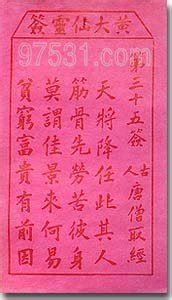 黃大仙靈簽
97531.com
第三十五簽
古人唐僧取經
天將降任此其人
筋骨先勞苦彼身
莫謂佳景來何易
貧窮富貴有前因